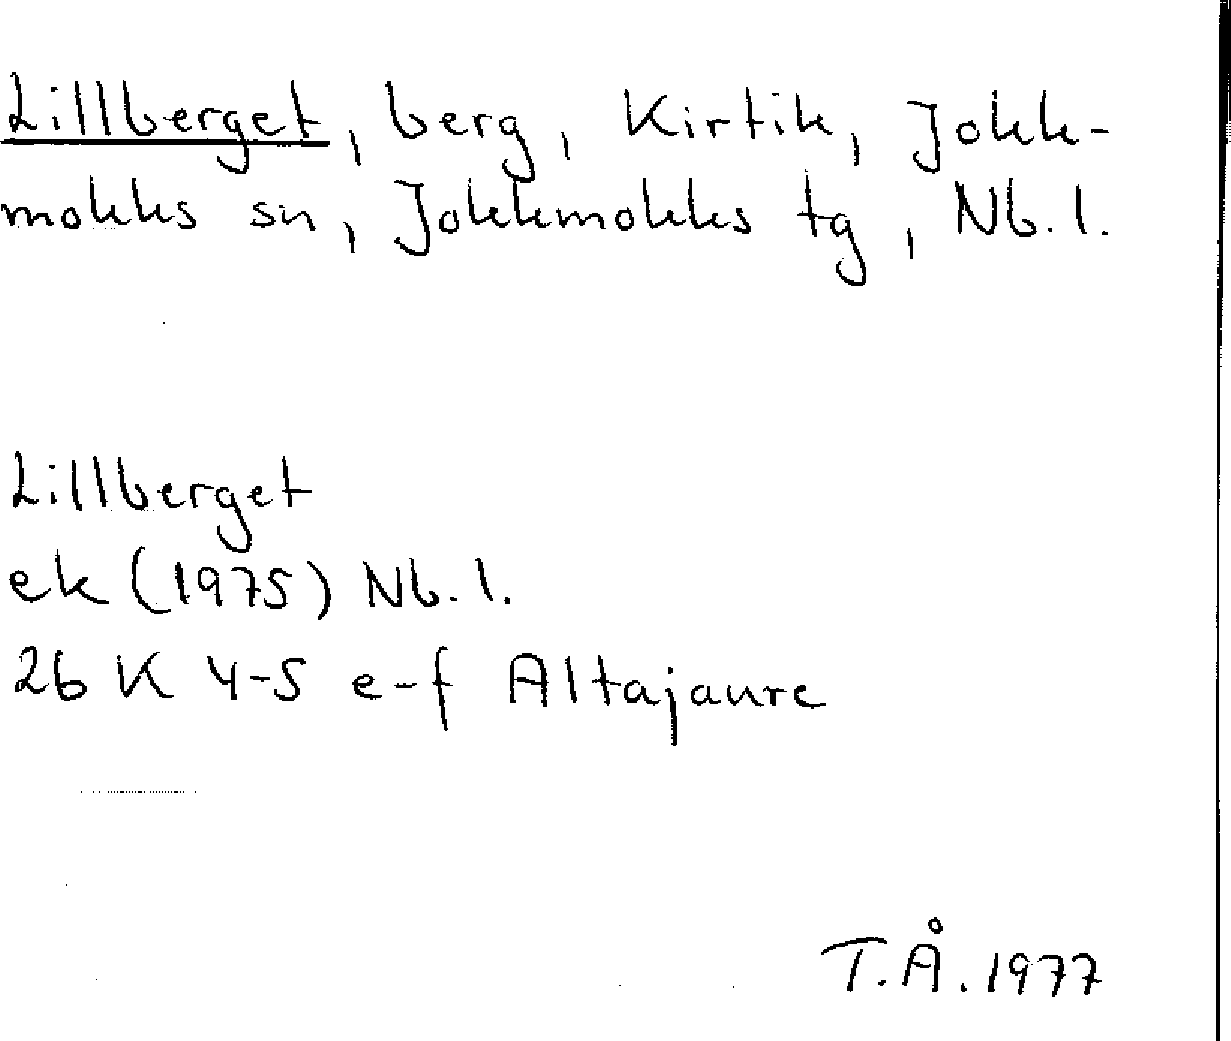 Lillberget, berg, Kirtik, Jokk-
mokks sn, Jokkmokks tg, Nb. l.
Lillberget
ek (1975) Nb. l.
26 K 4-5 e-f Altajaure
T. Å. 1977